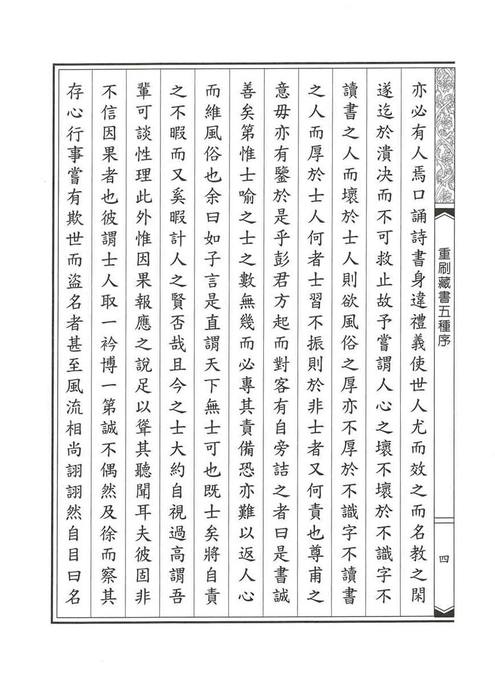 重刷藏書五種序
四
亦必有人焉口誦詩書身違禮義使世人尤而效之而名教之閑
遂迄於潰決而不可救止故予嘗謂人心之壞不壞於不識字不
讀書之人而壞於士人則欲風俗之厚亦不厚於不識字不讀書
之人而厚於士人何者士習不振則於非士者又何責也尊甫之
意毋亦有鑒於是乎彭君方起而對客有自旁詰之者曰是書誠
善矣第惟士喻之士之數無幾而必專其責備恐亦難以返人心
而維風俗也余曰如子言是直謂天下無士可也既士矣將自責
之不暇而又奚暇計人之賢否哉且今之士大約自視過高謂吾
輩可談性理此外惟因果報應之說足以聳其聽聞耳夫彼固非
不信因果者也彼謂士人取一衿博一第誠不偶然及徐而察其
存心行事嘗有欺世而盜名者甚至風流相尚詡詡然自目曰名